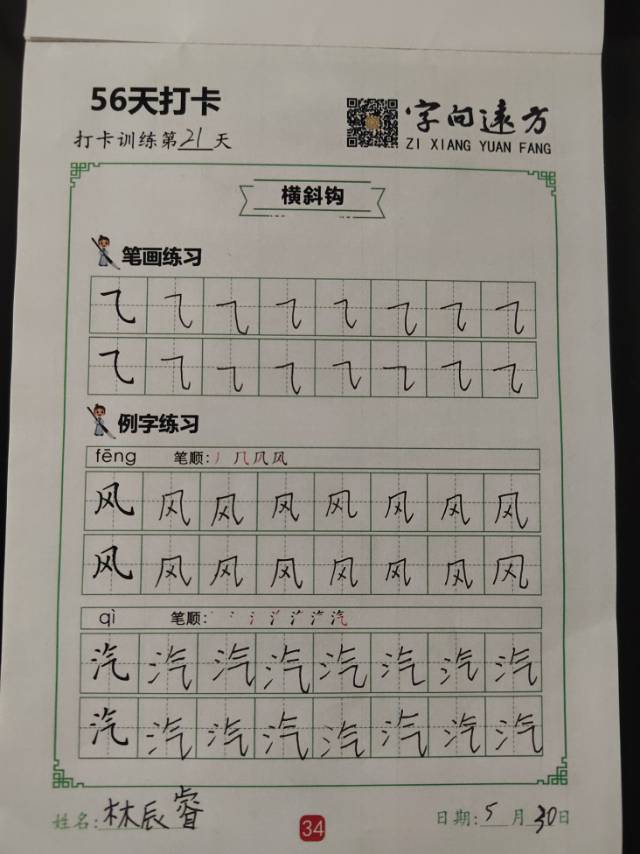 56天打卡
打卡训练第21天
字向远方
ZI XIANG YUAN FANG
横斜钩
笔画练习
⺄ ⺄ ⺄ ⺄ ⺄ ⺄ ⺄ ⺄
⺄ ⺄ ⺄ ⺄ ⺄ ⺄ ⺄ ⺄
例字练习
fēng 笔顺: 丿 几 风 风
风 风 风 风 风 风 风 风
风 风 风 风 风 风 风 风
qì 笔顺: 汽
汽 汽 汽 汽 汽 汽 汽 汽
汽 汽 汽 汽 汽 汽 汽 汽
姓名: 林辰睿
34
日期: 5 月 30 日